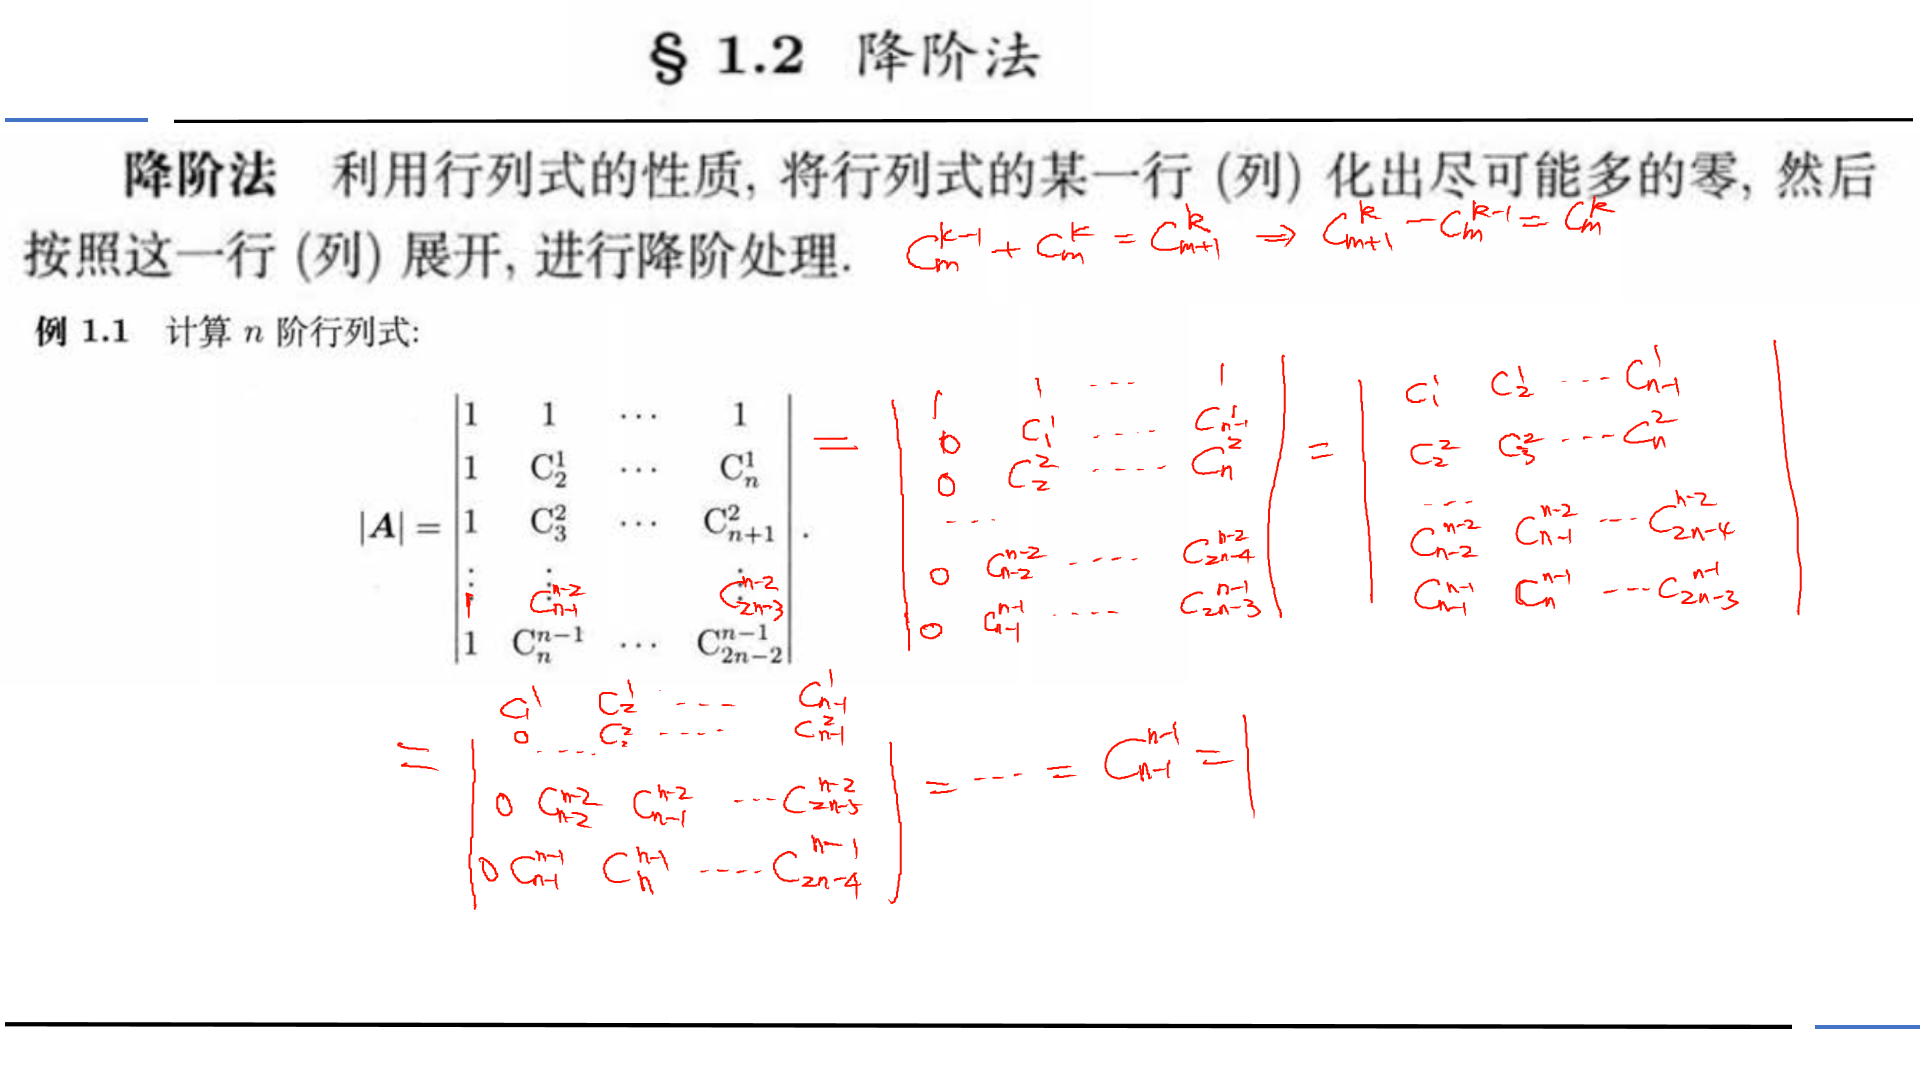 § 1.2 降阶法
降阶法 利用行列式的性质, 将行列式的某一行 (列) 化出尽可能多的零, 然后
按照这一行 (列) 展开, 进行降阶处理.
C_m^{k-1} + C_m^k = C_{m+1}^k ⇒ C_{m+1}^k - C_m^{k-1} = C_m^k
例 1.1 计算 n 阶行列式:
|A| =
1 1 ⋯ 1
1 C_2^1 ⋯ C_n^1
1 C_3^2 ⋯ C_{n+1}^2
⋮ ⋮ ⋮
1 C_{n-1}^{n-2} C_{2n-3}^{n-2}
1 C_n^{n-1} ⋯ C_{2n-2}^{n-1}
.
=
1 1 ---- 1
0 C_1^1 ---- C_{n-1}^1
0 C_2^2 ---- C_n^2
----
0 C_{n-2}^{n-2} ---- C_{2n-4}^{n-2}
0 C_{n-1}^{n-1} ---- C_{2n-3}^{n-1}
=
C_1^1 C_2^1 ---- C_{n-1}^1
C_2^2 C_3^2 ---- C_n^2
----
C_{n-2}^{n-2} C_{n-1}^{n-2} --- C_{2n-4}^{n-2}
C_{n-1}^{n-1} C_n^{n-1} --- C_{2n-3}^{n-1}
=
C_1^1 C_2^1 ---- C_{n-1}^1
0 C_2^2 ---- C_{n-1}^2
----
0 C_{n-2}^{n-2} C_{n-1}^{n-2} --- C_{2n-5}^{n-2}
0 C_{n-1}^{n-1} C_n^{n-1} ---- C_{2n-4}^{n-1}
= ---- = C_{n-1}^{n-1} = 1